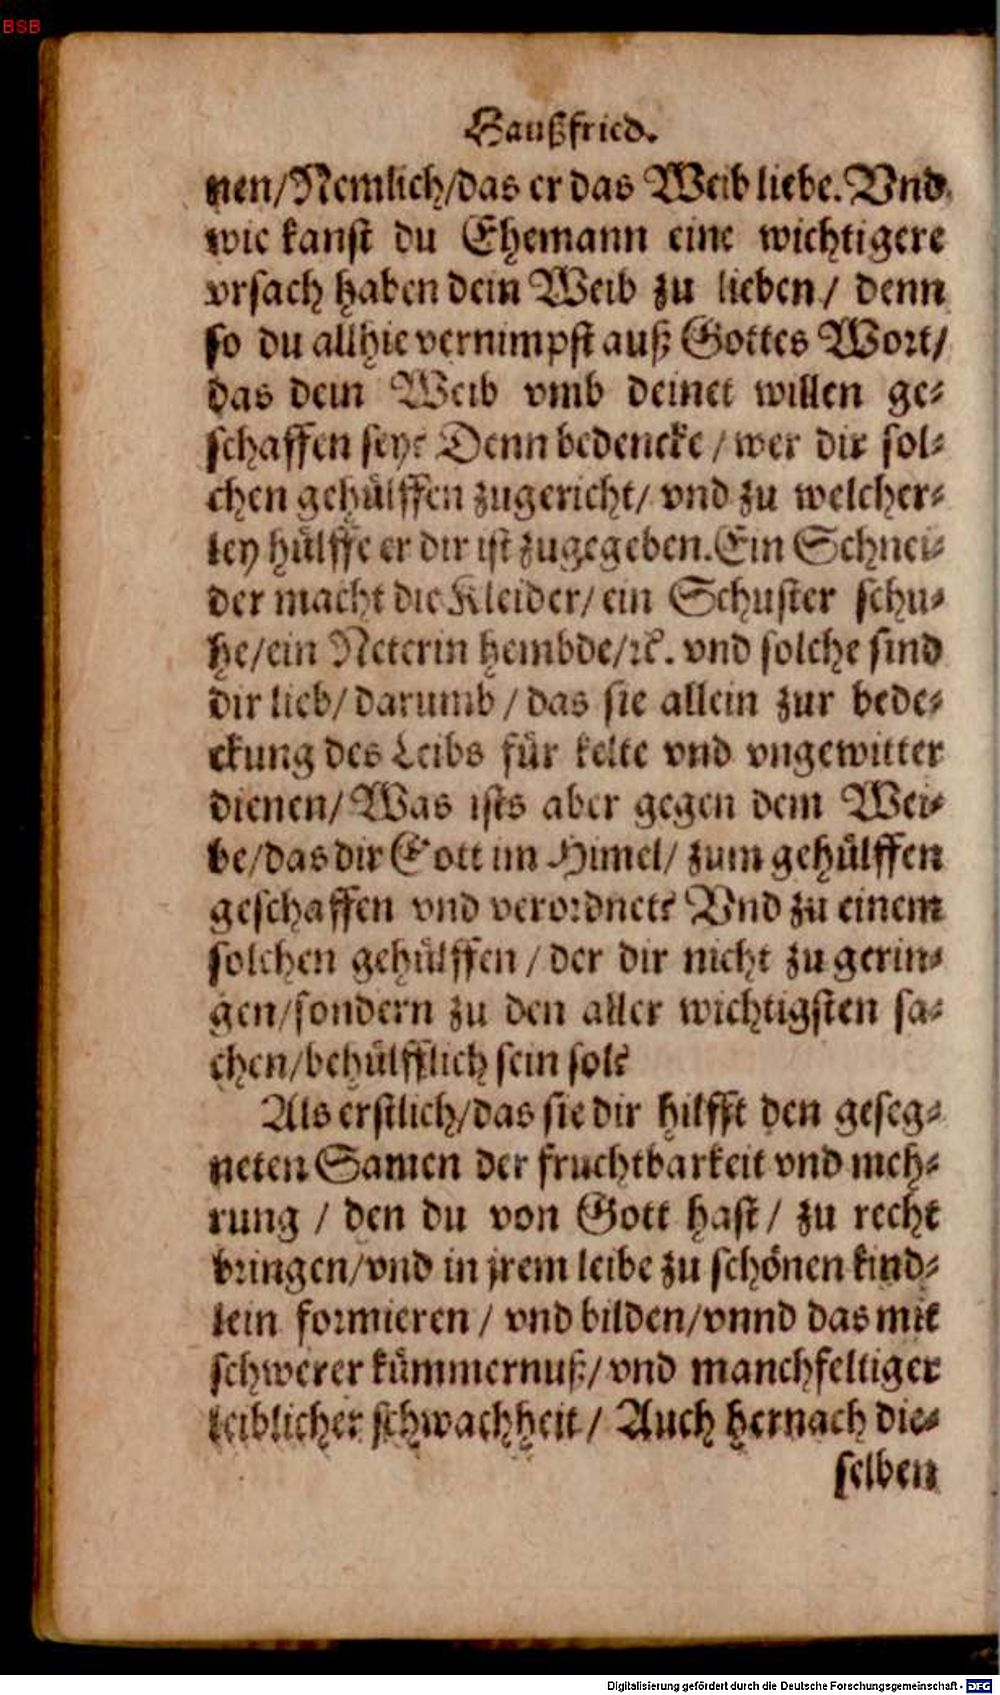 BSB
Haußfried.
nen/Nemlich/das er das Weib liebe. Vnd
wie kanst du Ehemann eine wichtigere
vrsach haben dein Weib zu lieben/ denn
so du allhie vernimpst auß Gottes Wort/
das dein Weib vmb deinet willen ge-
schaffen sey? Denn bedencke/ wer dir sol-
chen gehülffen zugericht/ vnd zu welcher-
ley hülffe er dir ist zugegeben. Ein Schnei-
der macht die Kleider/ ein Schuster schu-
he/ein Neterin hembde/ꝛc. vnd solche sind
dir lieb/ darumb/ das sie allein zur bede-
ckung des Leibs für kelte vnd vngewitter
dienen/ Was ists aber gegen dem Wei-
be/das dir Gott im Himel/ zum gehülffen
geschaffen vnd verordnet? Vnd zu einem
solchen gehülffen/ der dir nicht zu gerin-
gen/sondern zu den aller wichtigsten sa-
chen/behülfflich sein sol?
Als erstlich/das sie dir hilfft den geseg-
neten Samen der fruchtbarkeit vnd meh-
rung/ den du von Gott hast/ zu recht
bringen/vnd in jrem leibe zu schönen kind-
lein formieren/ vnd bilden/vnnd das mit
schwerer kümmernuß/ vnd manchfeltiger
leiblicher schwachheit/ Auch hernach die-
selben
Digitalisierung gefördert durch die Deutsche Forschungsgemeinschaft - DFG